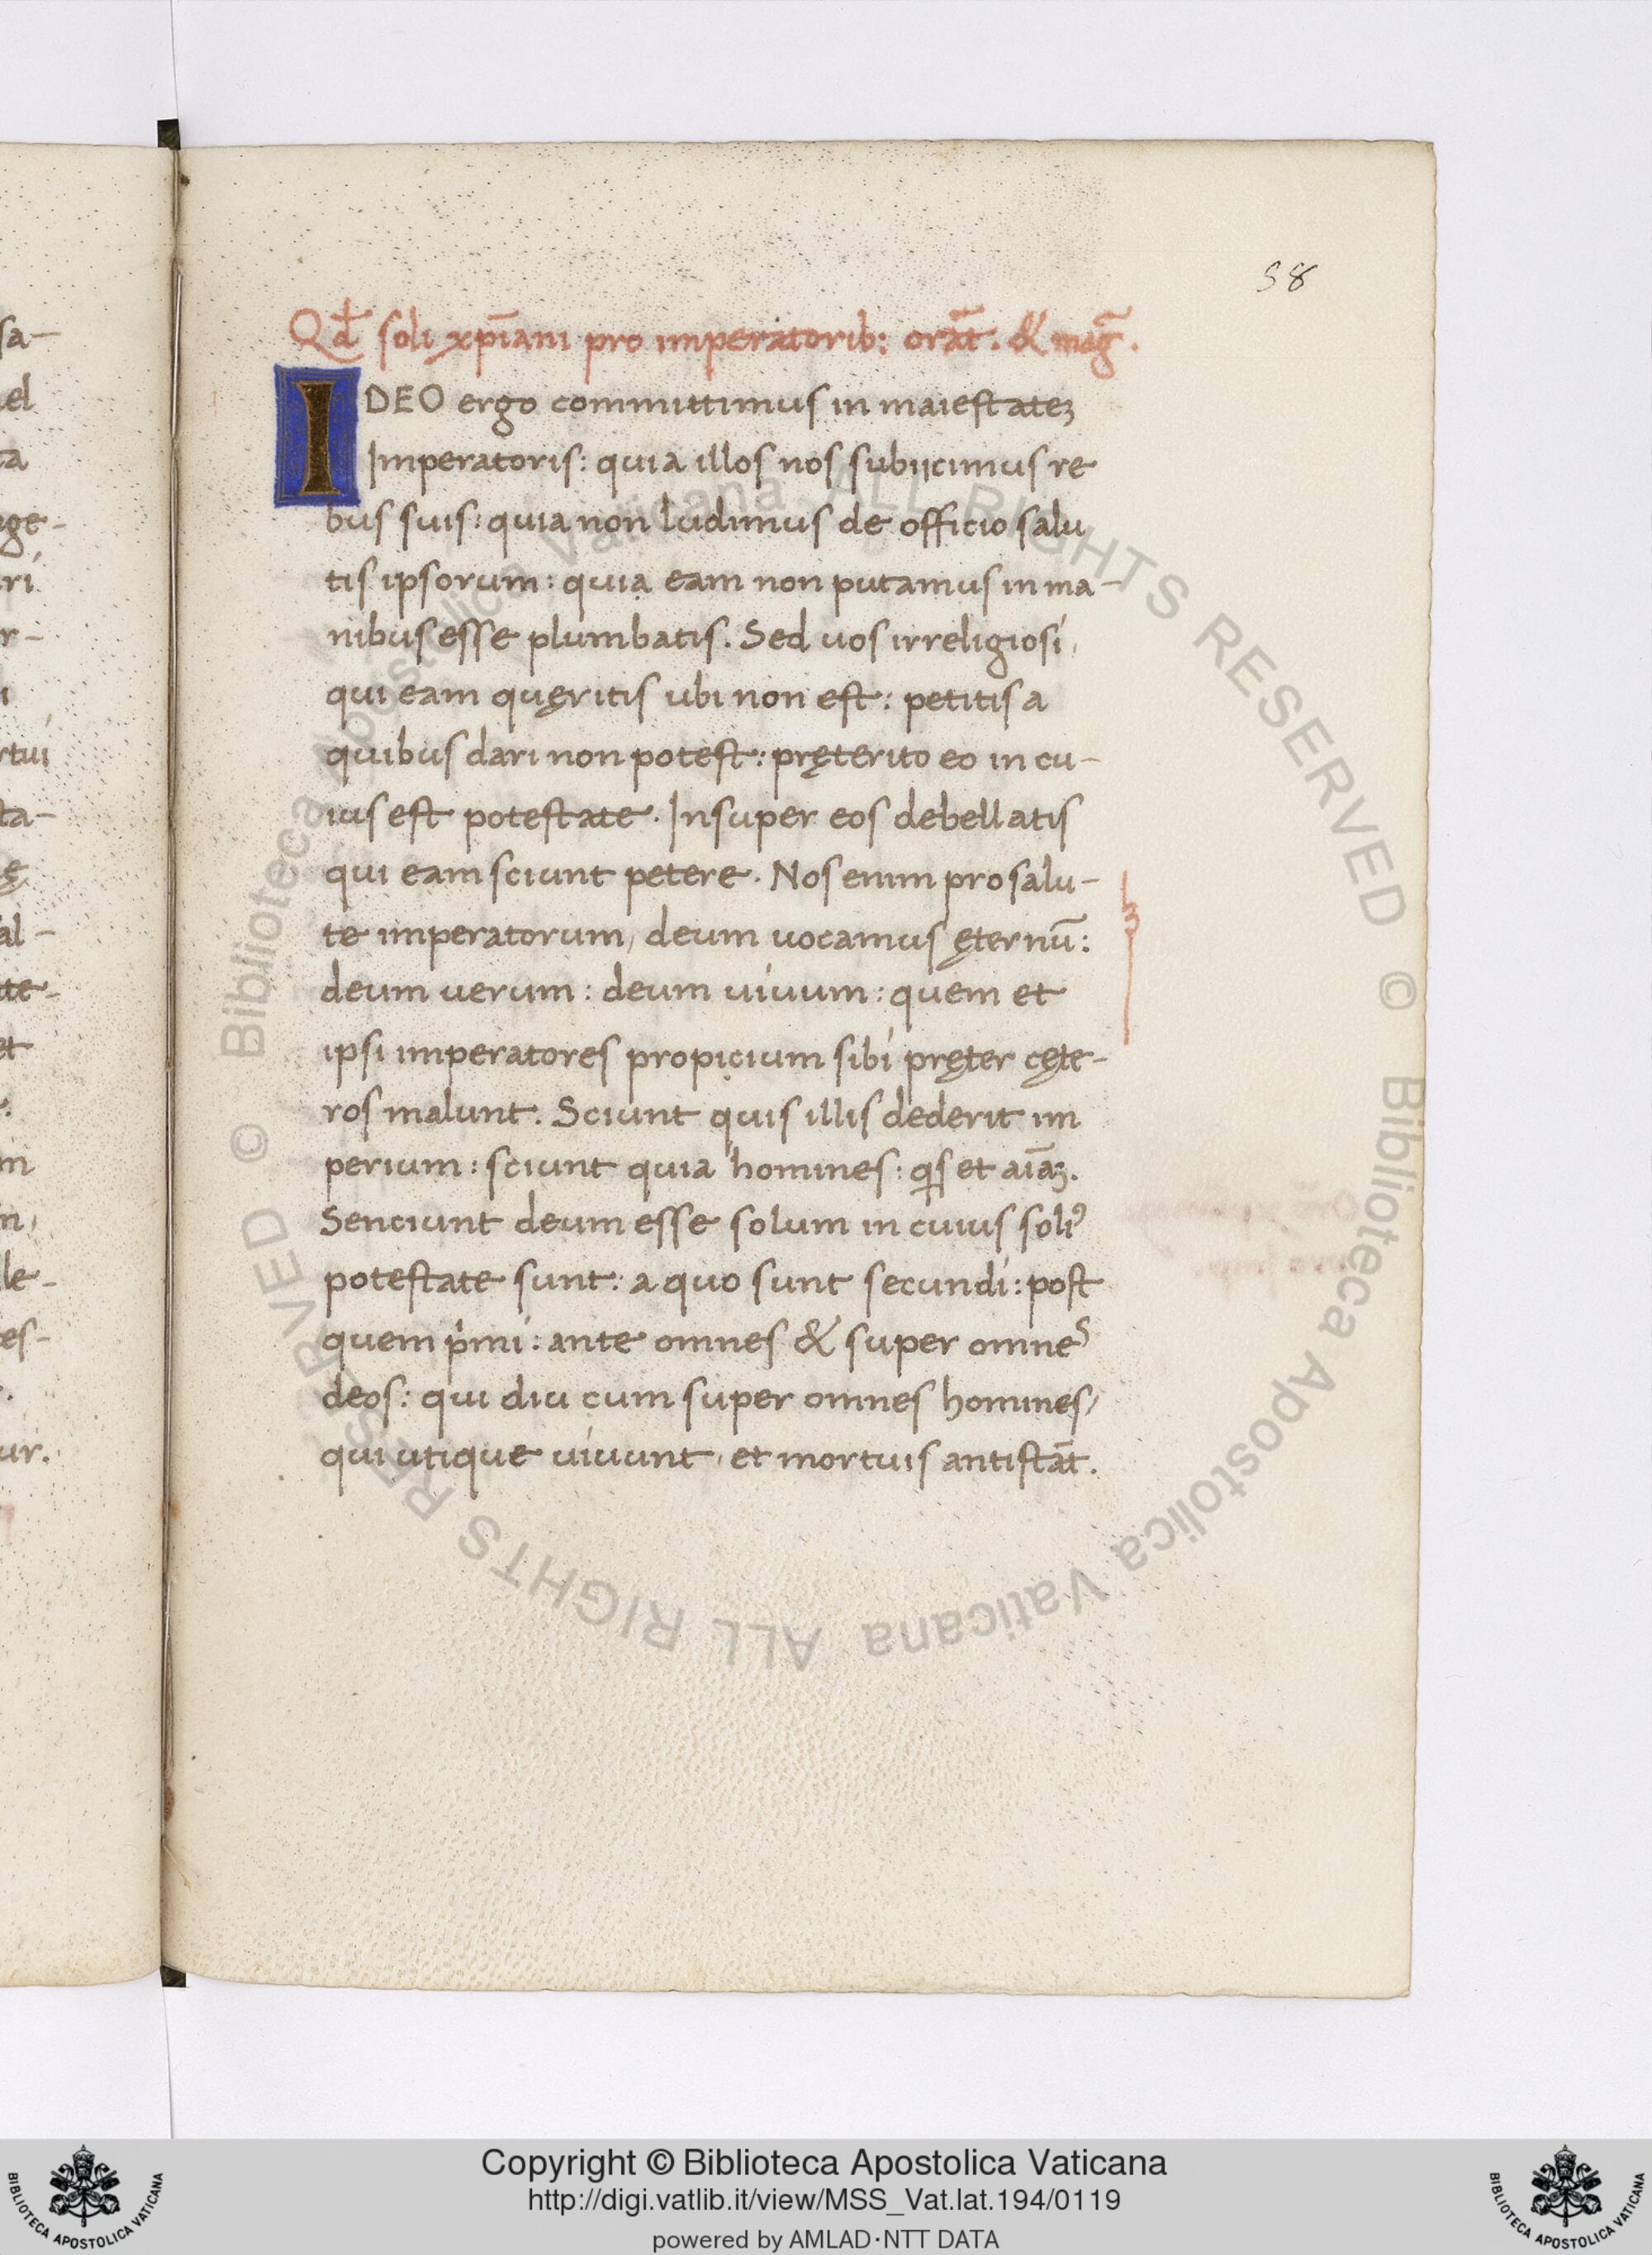 58
Qd̄ soli xp̄iani pro imperatorib: orāt. & maḡ.
IDEO ergo committimus in maiestateꝫ
Imperatoris: quia illos nos subijcimus re
bus suis: quia non ludimus de officio salu
tis ipsorum: quia eam non putamus in ma-
nibus esse plumbatis. Sed uos irreligiosi,
qui eam quęritis ubi non est: petitis a
quibus dari non potest: pręterito eo in cu-
ius est potestate. Insuper eos debellatis
qui eam sciunt petere. Nos enim pro salu-
te imperatorum, deum uocamus ęternū:
deum uerum: deum uiuum: quem et
ipsi imperatores propicium sibi pręter cęte-
ros malunt. Sciunt quis illis dederit im
perium: sciunt quia homines: qs et aiāꝫ.
Senciunt deum esse solum in cuius soliꝰ
potestate sunt: a quo sunt secundi: post
quem pͥmi: ante omnes & super omnes
deos: qui diu cum super omnes homines,
qui utique uiuunt, et mortuis antistāt.
sa-
el
ta
ge-
ri
r-
i
rtui
ta-
ę
al-
te-
et
m
n,
le-
es-
ur.
© Biblioteca Apostolica Vaticana ALL RIGHTS RESERVED © Biblioteca Apostolica Vaticana ALL RIGHTS RESERVED
Copyright © Biblioteca Apostolica Vaticana
http://digi.vatlib.it/view/MSS_Vat.lat.194/0119
powered by AMLAD·NTT DATA
BIBLIOTECA APOSTOLICA VATICANA
BIBLIOTECA APOSTOLICA VATICANA